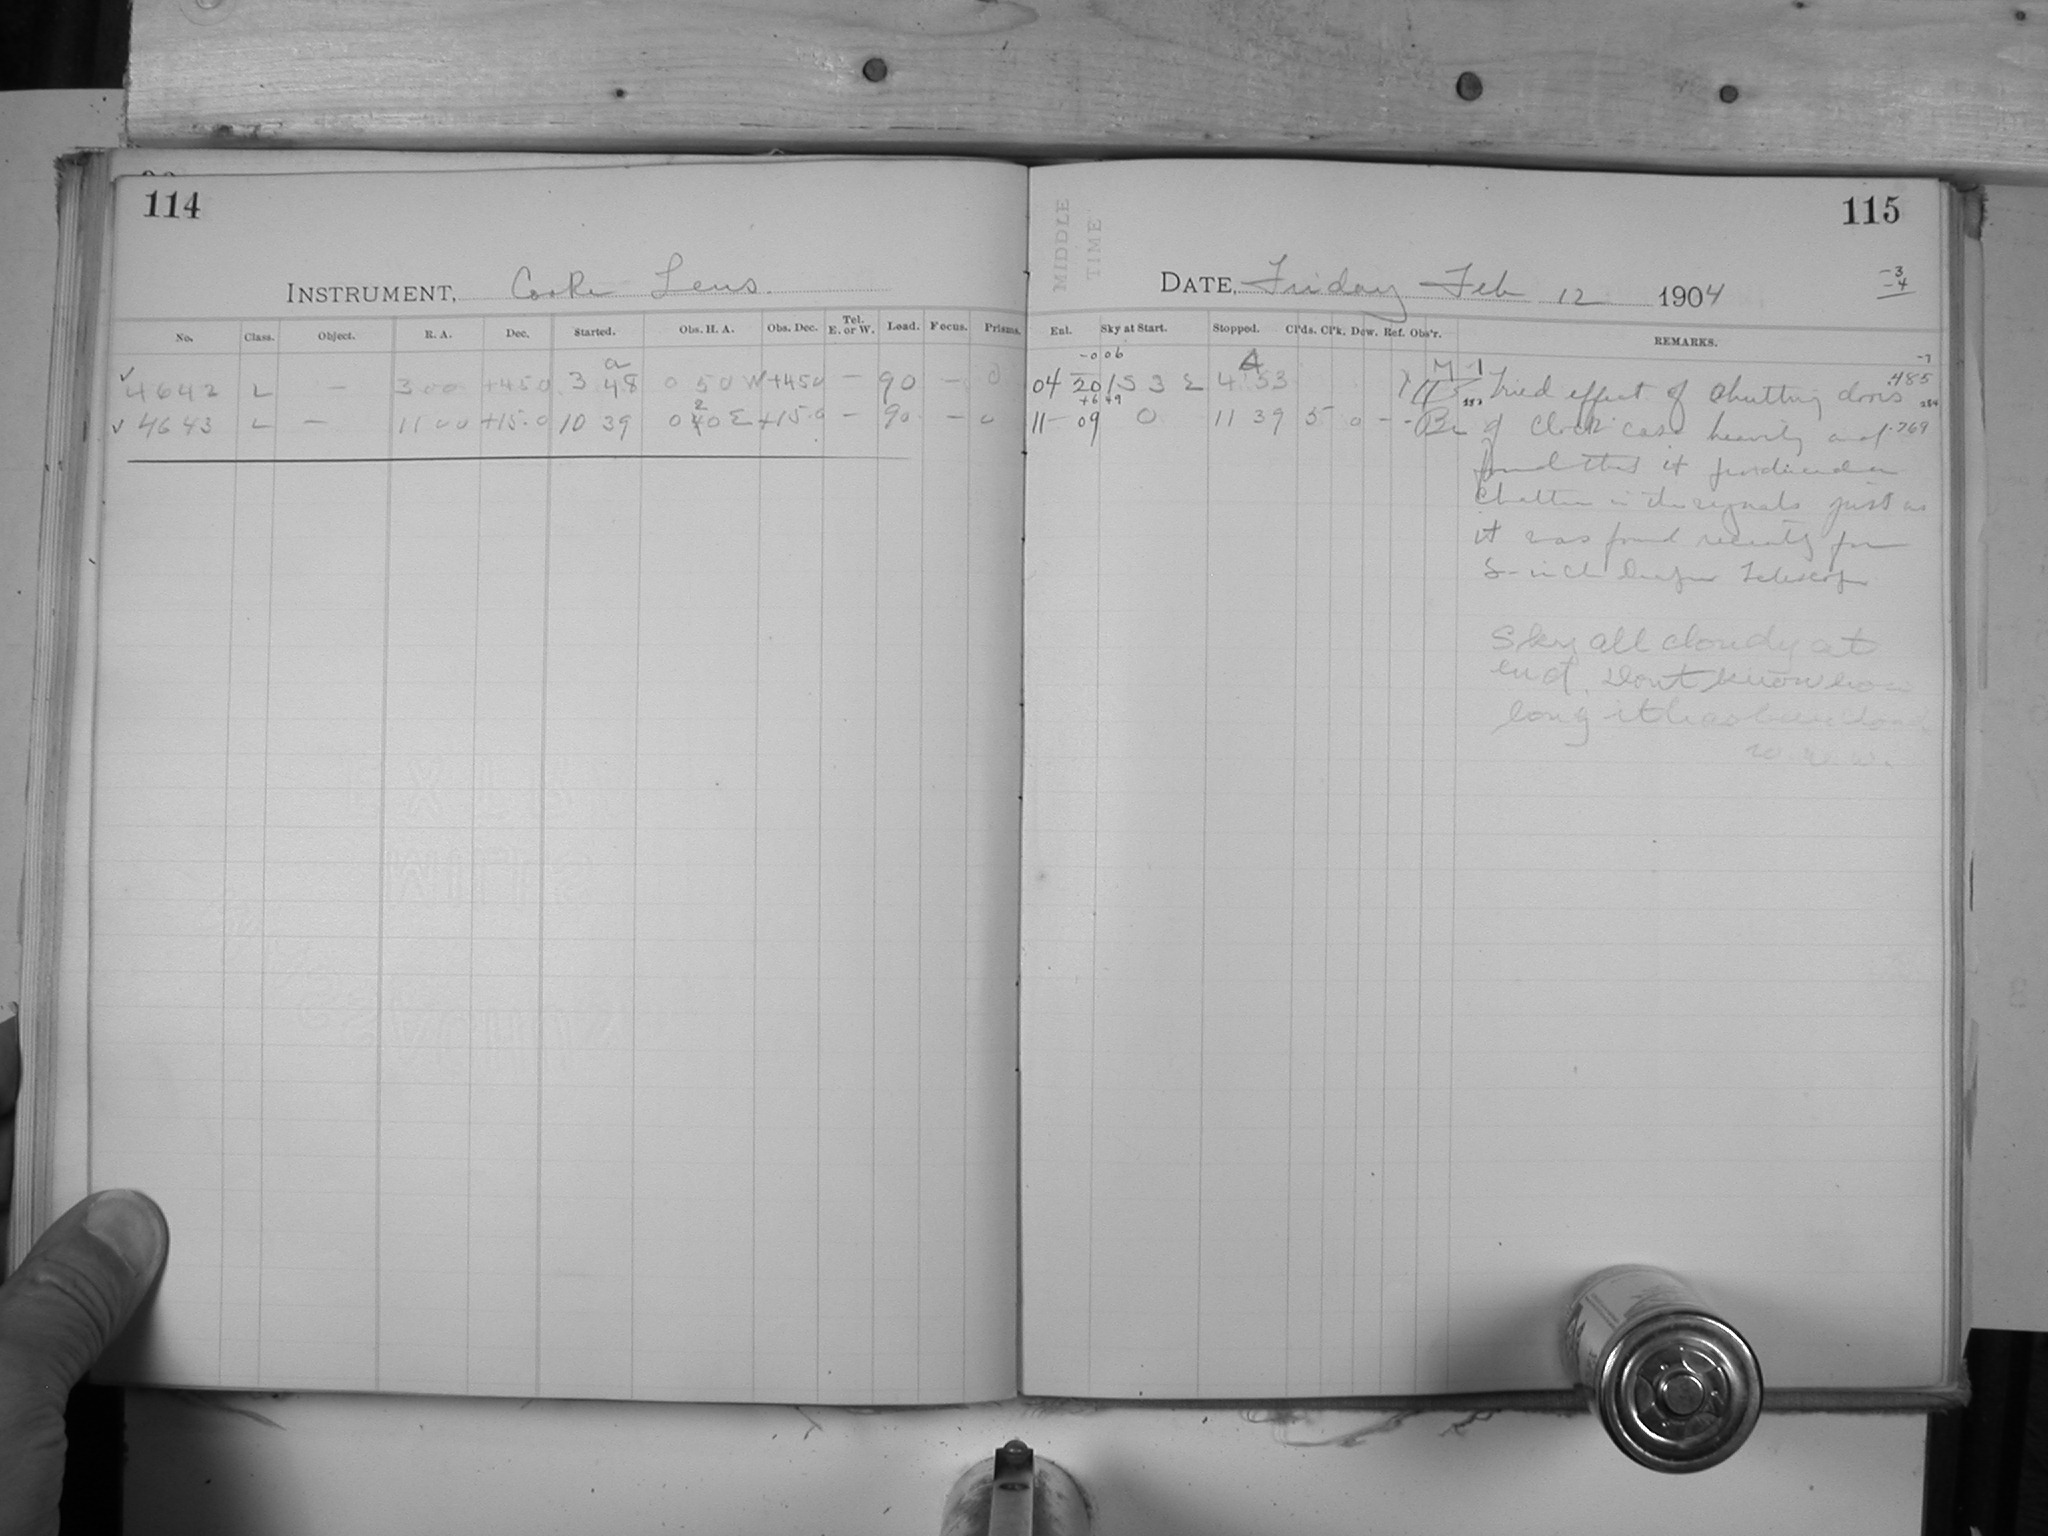 114
INSTRUMENT, Cooke Lens.
No. Class. Object. R. A. Dec. Started. Obs. H. A. Obs. Dec. Tel. E. or W. Load. Focus. Prisms.
a
✓ 4642 L — 3 00 +45.0 3 48 0 50 W +45.0 — 90 — 0
✓ 4643 L — 11 00 +15.0 10 39 0 20 E +15.0 — 90 — 0
MIDDLE
TIME
115
DATE, Friday Feb 12 1904
-3
-4
Ent. Sky at Start. Stopped. Cl'ds. Cl'k. Dew. Ref. Obs'r. REMARKS.
-0 06
-7
04 20 S 3 E 4 53 Tried effect of shutting doors .485
+6 49
11 09 0 11 39 5 0 - - of clock case heavily and .769
found that it produced a
chatter in the signals just as
it was found recently for
8-inch Draper Telescope
Sky all cloudy at
end. Dont know how
long it has been